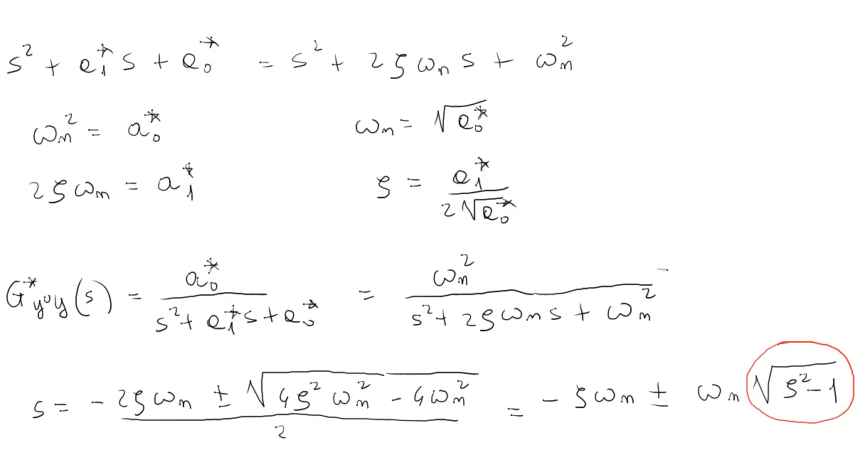 s² + a₁* s + a₀* = s² + 2ζωₙ s + ωₙ²
ωₙ² = a₀* ωₙ = √a₀*
2ζωₙ = a₁* ζ = a₁* / (2√a₀*)
G*_y⁰y(s) = a₀* / (s² + a₁* s + a₀*) = ωₙ² / (s² + 2ζωₙ s + ωₙ²)
s = (-2ζωₙ ± √(4ζ²ωₙ² - 4ωₙ²)) / 2 = -ζωₙ ± ωₙ √(ζ² - 1)